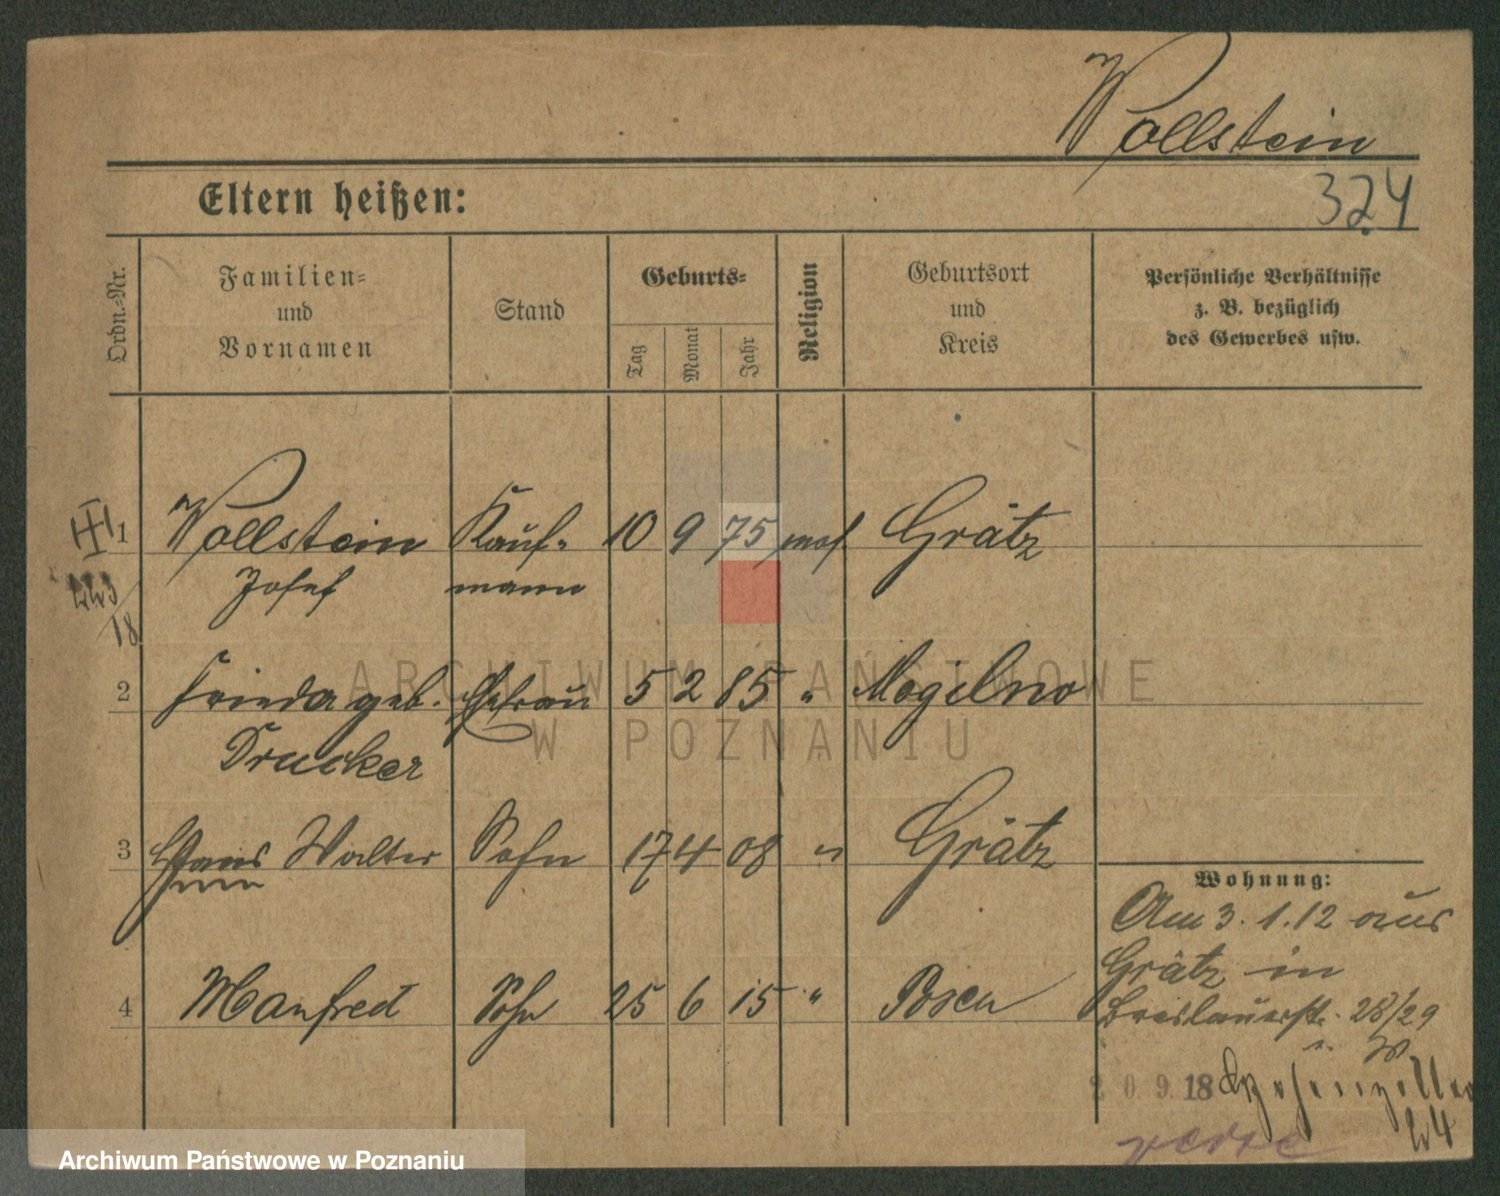 Wollstein
Eltern heißen:
324
Ordn.-Nr.
Familien-
und
Vornamen
Stand
Geburts-
Tag
Monat
Jahr
Religion
Geburtsort
und
Kreis
Persönliche Verhältnisse
z. B. bezüglich
des Gewerbes usw.
1 Wollstein Kauf- 10 9 75 mos. Grätz
Josef mann
18
2 Frieda geb. Ehefrau 5 2 85 " Mogilno
Drucker
3 Hans Walter Sohn 17 4 08 " Grätz
4 Manfred Sohn 25 6 15 " Posen
Wohnung:
Am 3. 1. 12 aus
Grätz in
Breslauerstr. 28/29
20. 9. 18
24
verte
ARCHIWUM PAŃSTWOWE
W POZNANIU
Archiwum Państwowe w Poznaniu